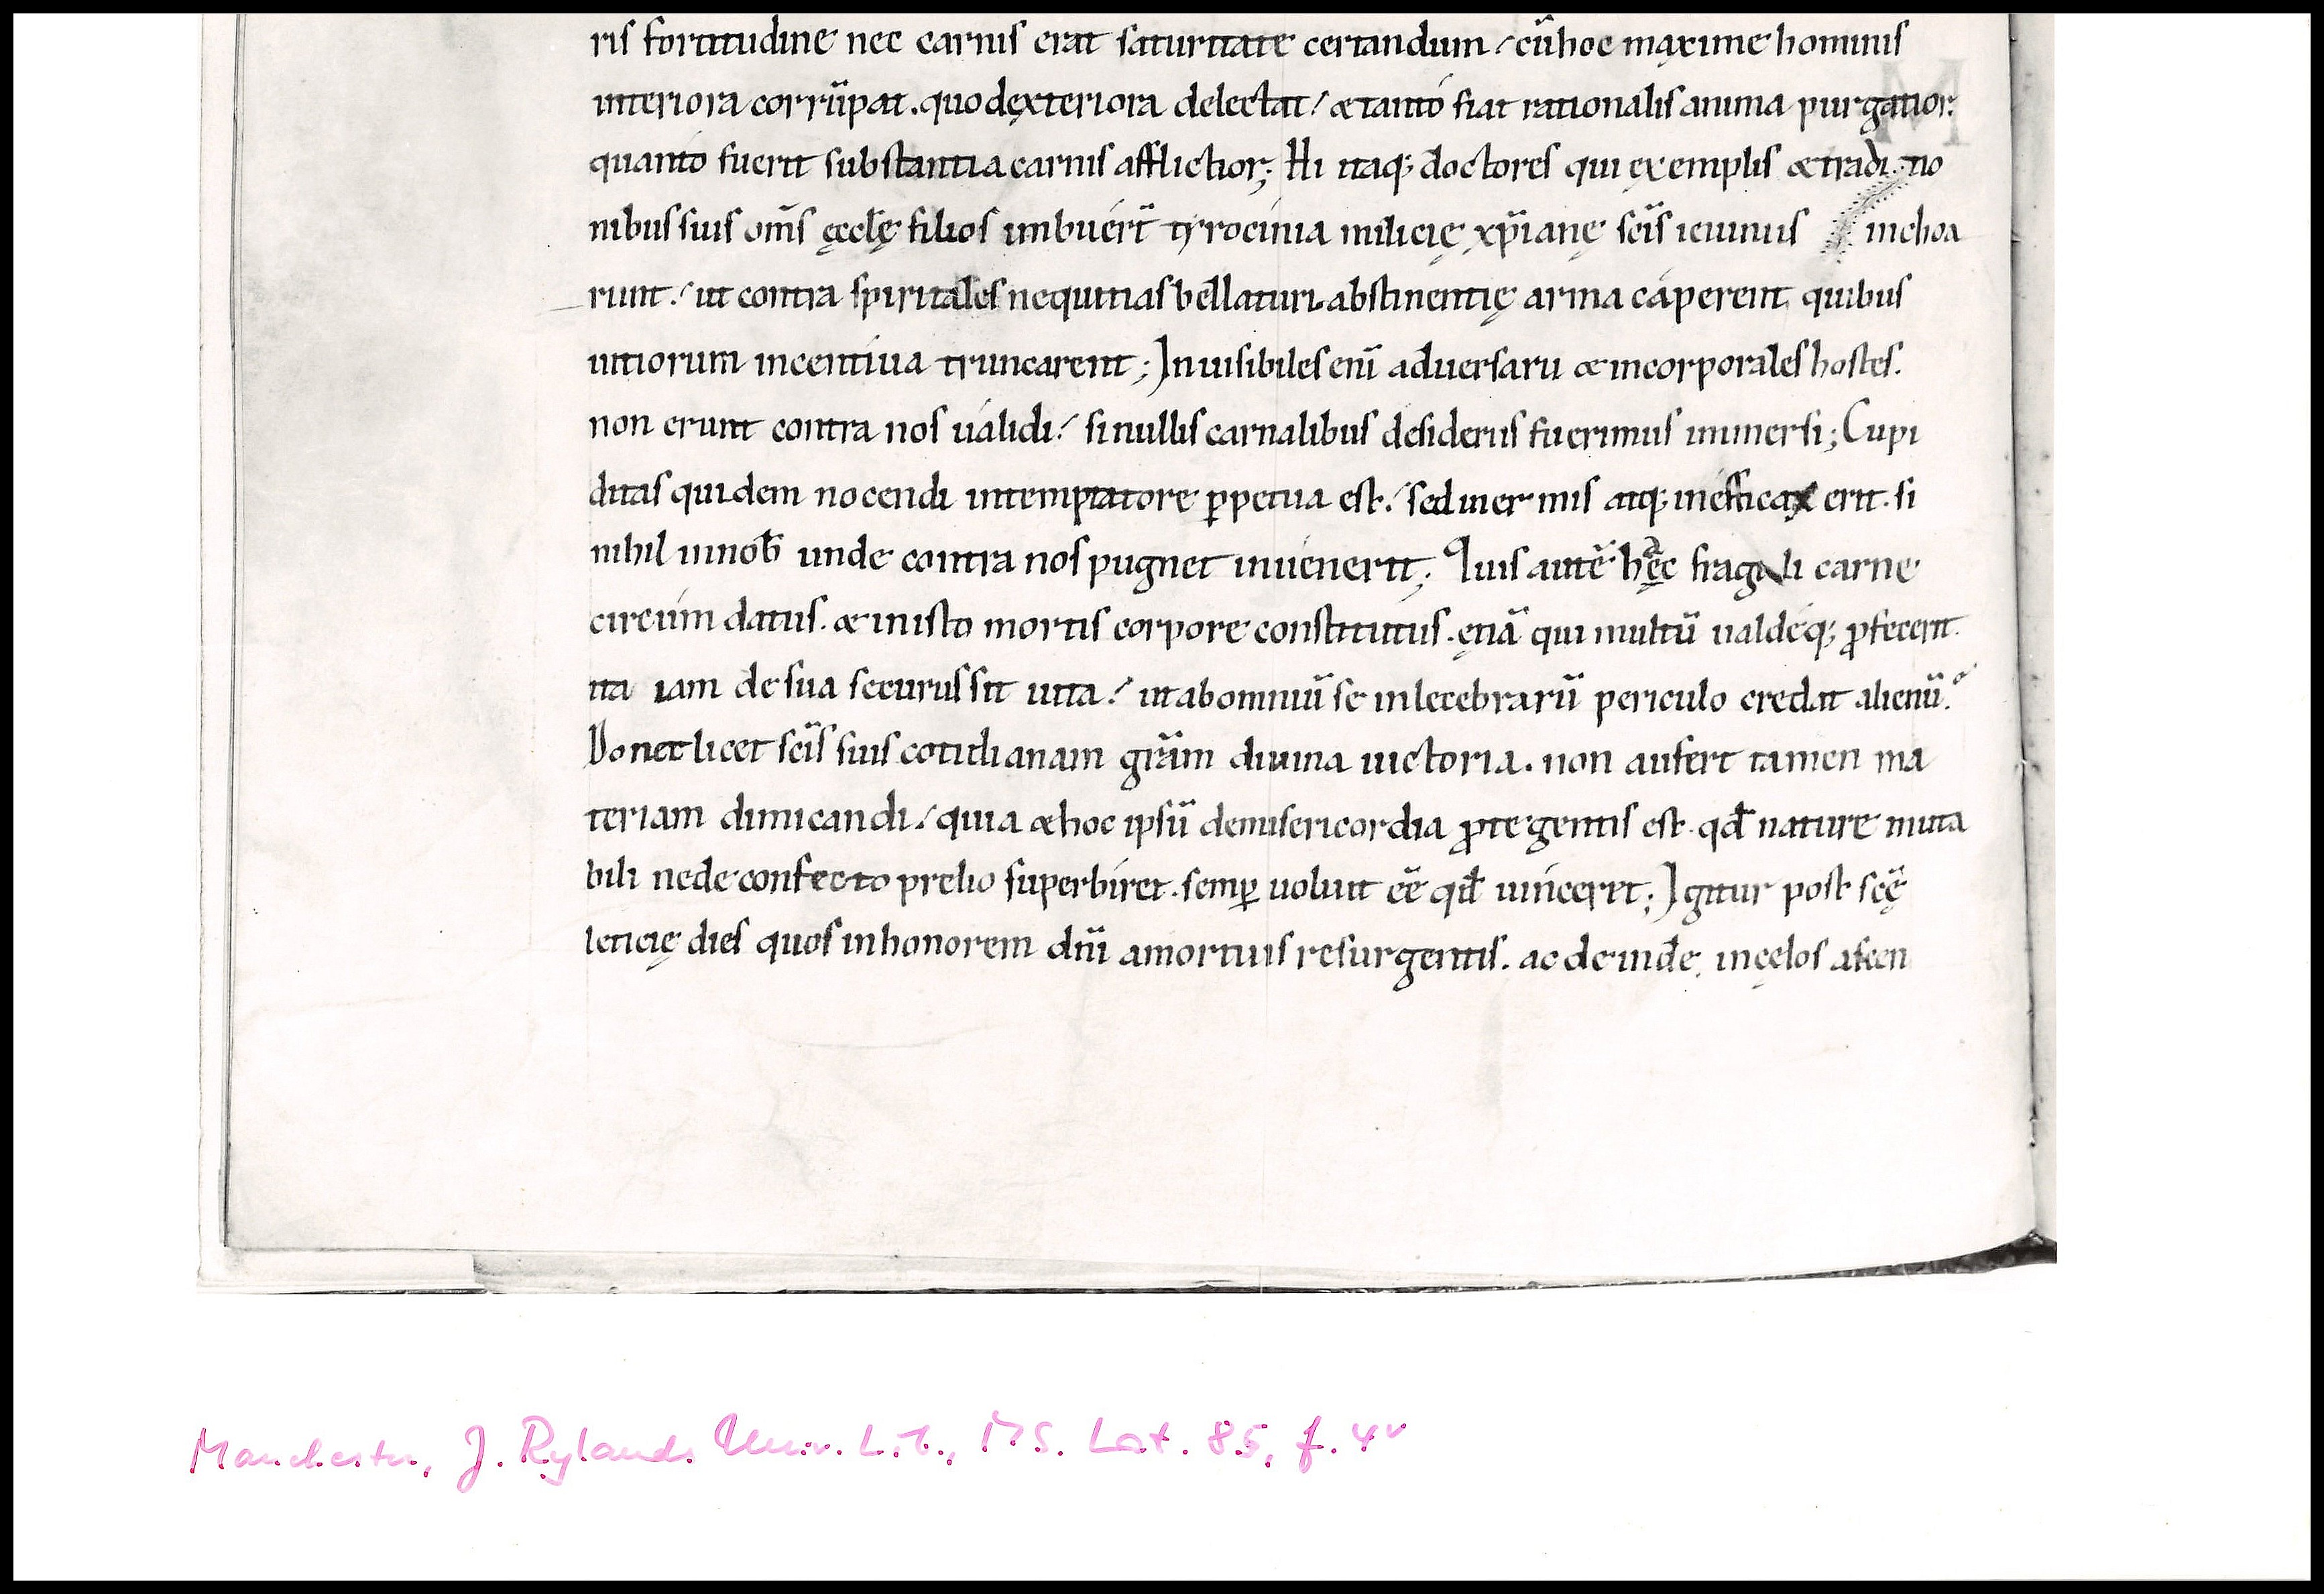 ris fortitudine nec carnis erat saturitate certandum, cū hoc maxime hominis
interiora corrūpat. quod exteriora delectat, & tanto fiat rationalis anima purgatior.
quanto fuerit substantia carnis afflictior; Hi itaq; doctores qui exemplis & traditio
nibus suis om̄s ęcclę filios imbuer̄t tyrocinia milicię xp̄ianę sc̄is ieiuniis inchoa
runt. ut contra spiritales nequitias bellaturi abstinentię arma caperent, quibus
uitiorum incentiua truncarent; Inuisibiles enī aduersarii & incorporales hostes.
non erunt contra nos ualidi, si nullis carnalibus desideriis fuerimus immersi; Cupi
ditas quidem nocendi in temptatore ꝑpetua est, sed inermis atq; inefficax erit. si
nihil in nob̄ unde contra nos pugnet inuenerit; Quis autē hac fragili carne
circumdatus. & in isto mortis corpore constitutus. etiā qui multū ualdeq; ꝓfecerit.
ita iam de sua securus sit uita, ut ab omniū se inlecebrarū periculo credat alienū.
Donet licet sc̄is suis cotidianam gr̄am diuina uictoria. non aufert tamen ma
teriam dimicandi, quia & hoc ipsū de misericordia ꝓtegentis est. qđ nature muta
bili ne de confecto prelio superbiret. semꝑ uoluit eē qđ uinceret; Igitur post sc̄ę
leticię dies quos in honorem dn̄i a mortuis resurgentis. ac deinde in cęlos ascen
Manchester, J. Rylands Univ. Lib., MS. Lat. 85, f. 4v